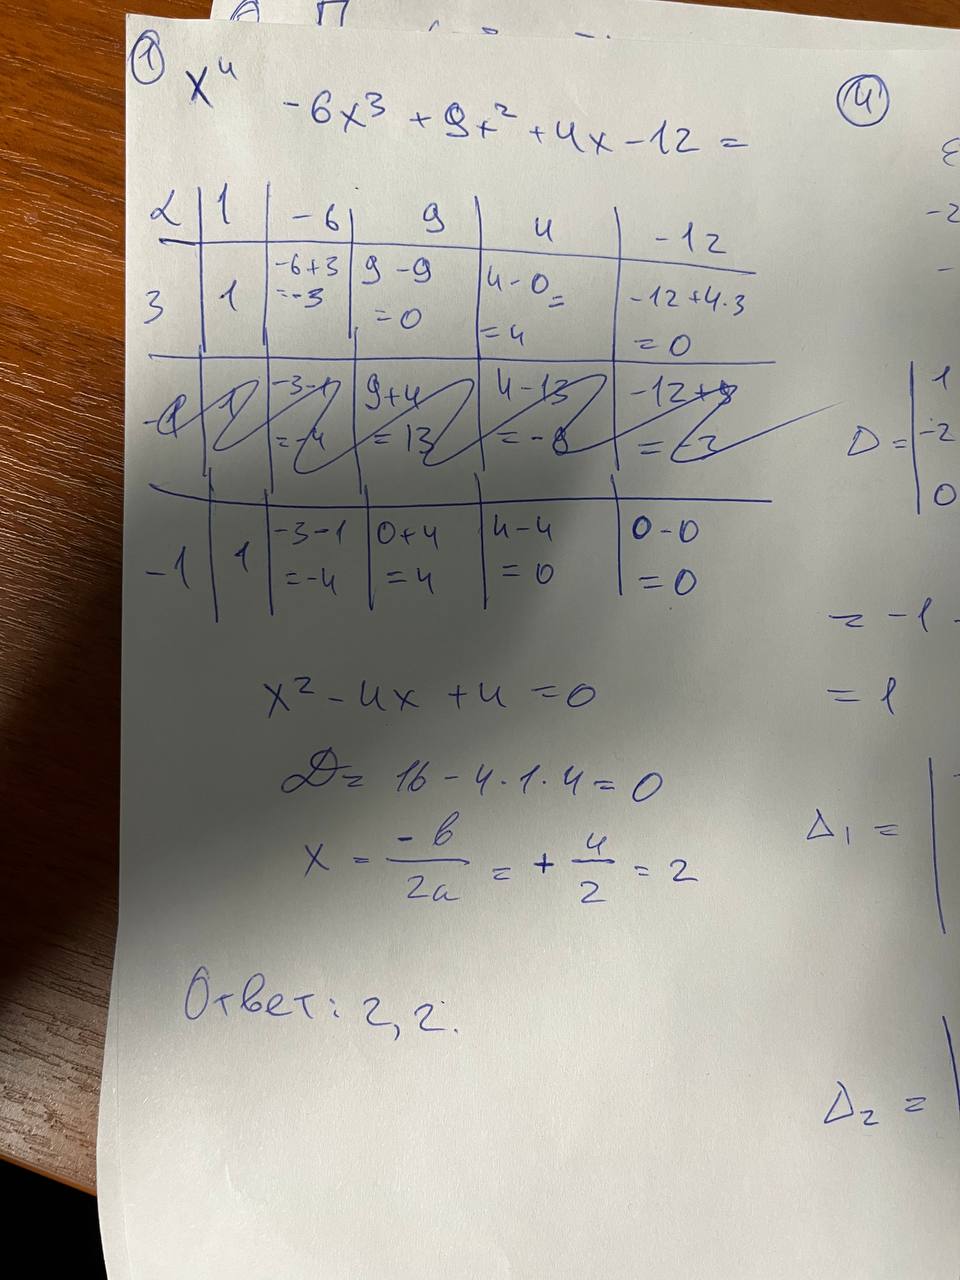 ①
x⁴ -6x³ + 9x² + 4x - 12 =
α | 1 | -6 | 9 | 4 | -12
3 | 1 | -6+3 =-3 | 9-9 =0 | 4-0= =4 | -12+4·3 =0
-1 | 1 | -3-1 =-4 | 9+4 =13 | 4-13
-1 | 1 | -3-1 =-4 | 0+4 =4 | 4-4 =0 | 0-0 =0
x² - 4x + 4 = 0
D = 16 - 4·1·4 = 0
x = -b/2a = + 4/2 = 2
Ответ: 2, 2.
④
-2
-
D = | 1
-2
0
= -1 -
= 1
Δ₁ = |
Δ₂ = |